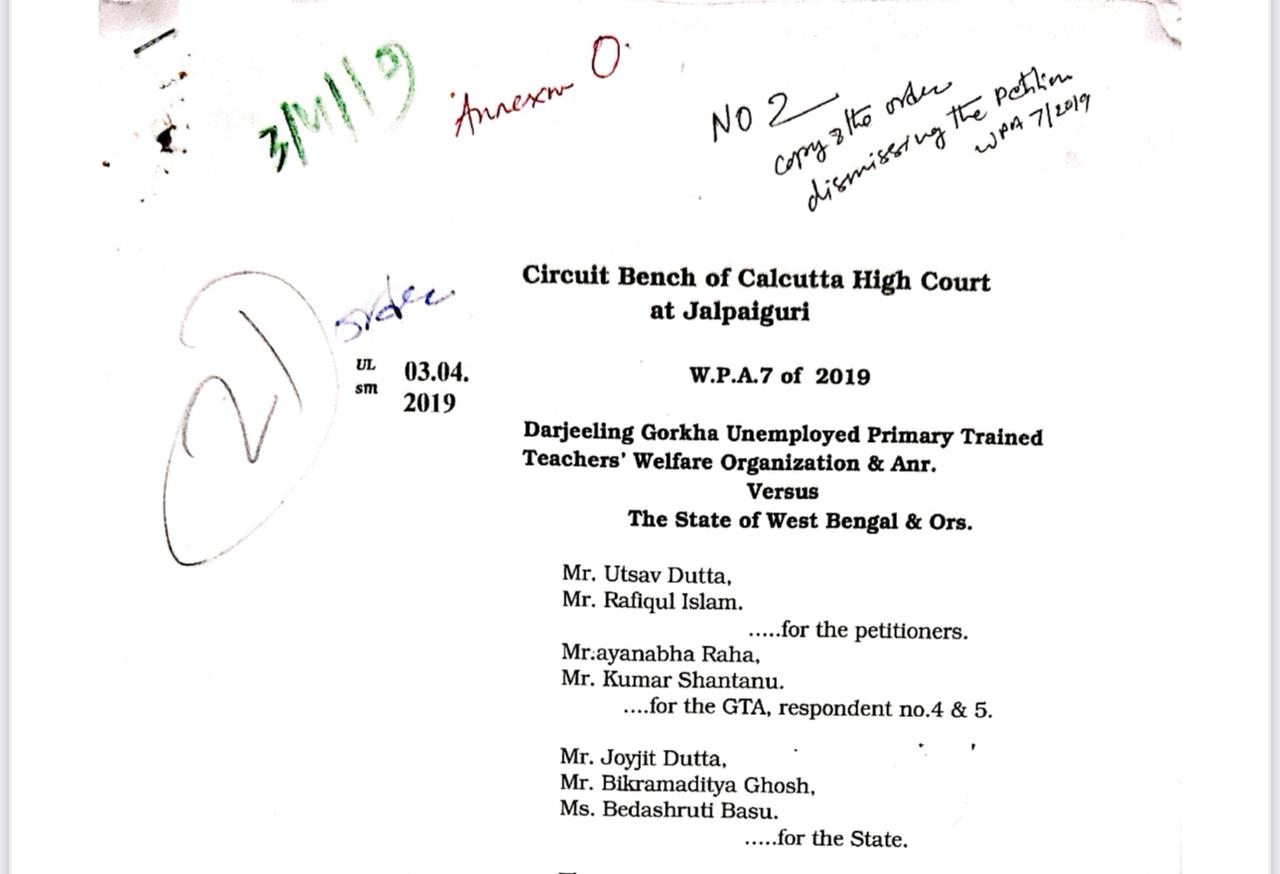 3/4/19
Annexure O.
NO 2
copy of the order
dismissing the Petition
WPA 7/2019
21
order
Circuit Bench of Calcutta High Court
at Jalpaiguri
UL
sm
03.04.
2019
W.P.A.7 of 2019
Darjeeling Gorkha Unemployed Primary Trained
Teachers' Welfare Organization & Anr.
Versus
The State of West Bengal & Ors.
Mr. Utsav Dutta,
Mr. Rafiqul Islam.
.....for the petitioners.
Mr.ayanabha Raha,
Mr. Kumar Shantanu.
....for the GTA, respondent no.4 & 5.
Mr. Joyjit Dutta,
Mr. Bikramaditya Ghosh,
Ms. Bedashruti Basu.
.....for the State.